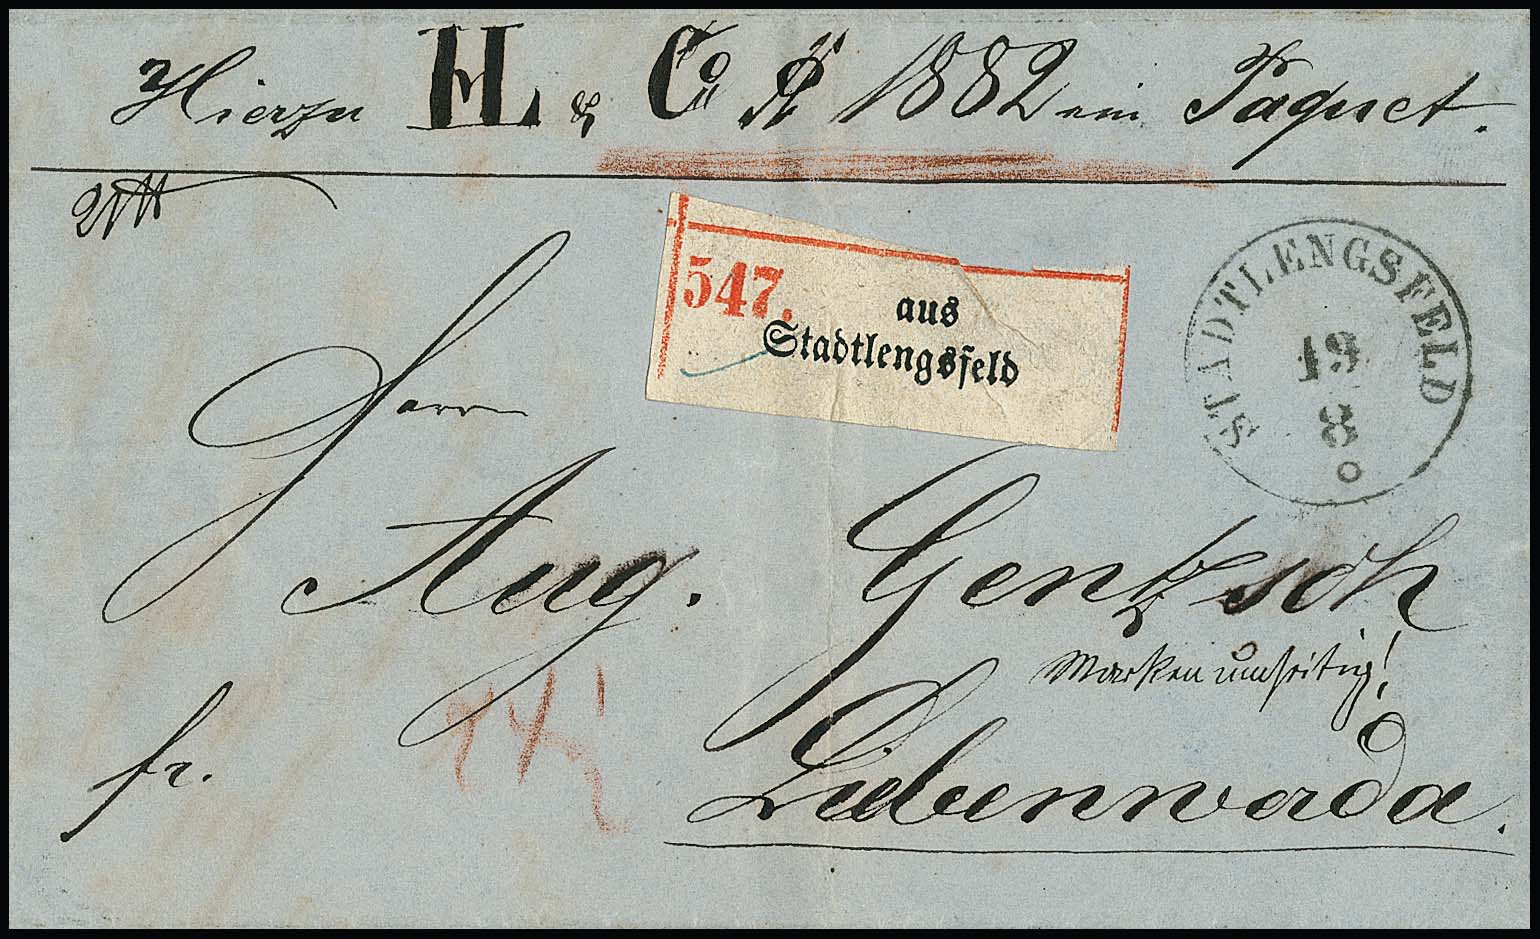 Hierzu H & Co # 1882 ein Paquet.
547.
aus
Stadtlengsfeld
STADTLENGSFELD
19
8
Herrn
Aug. Gentzsch
Marken umseitig!
fr.
Liebenwerda.